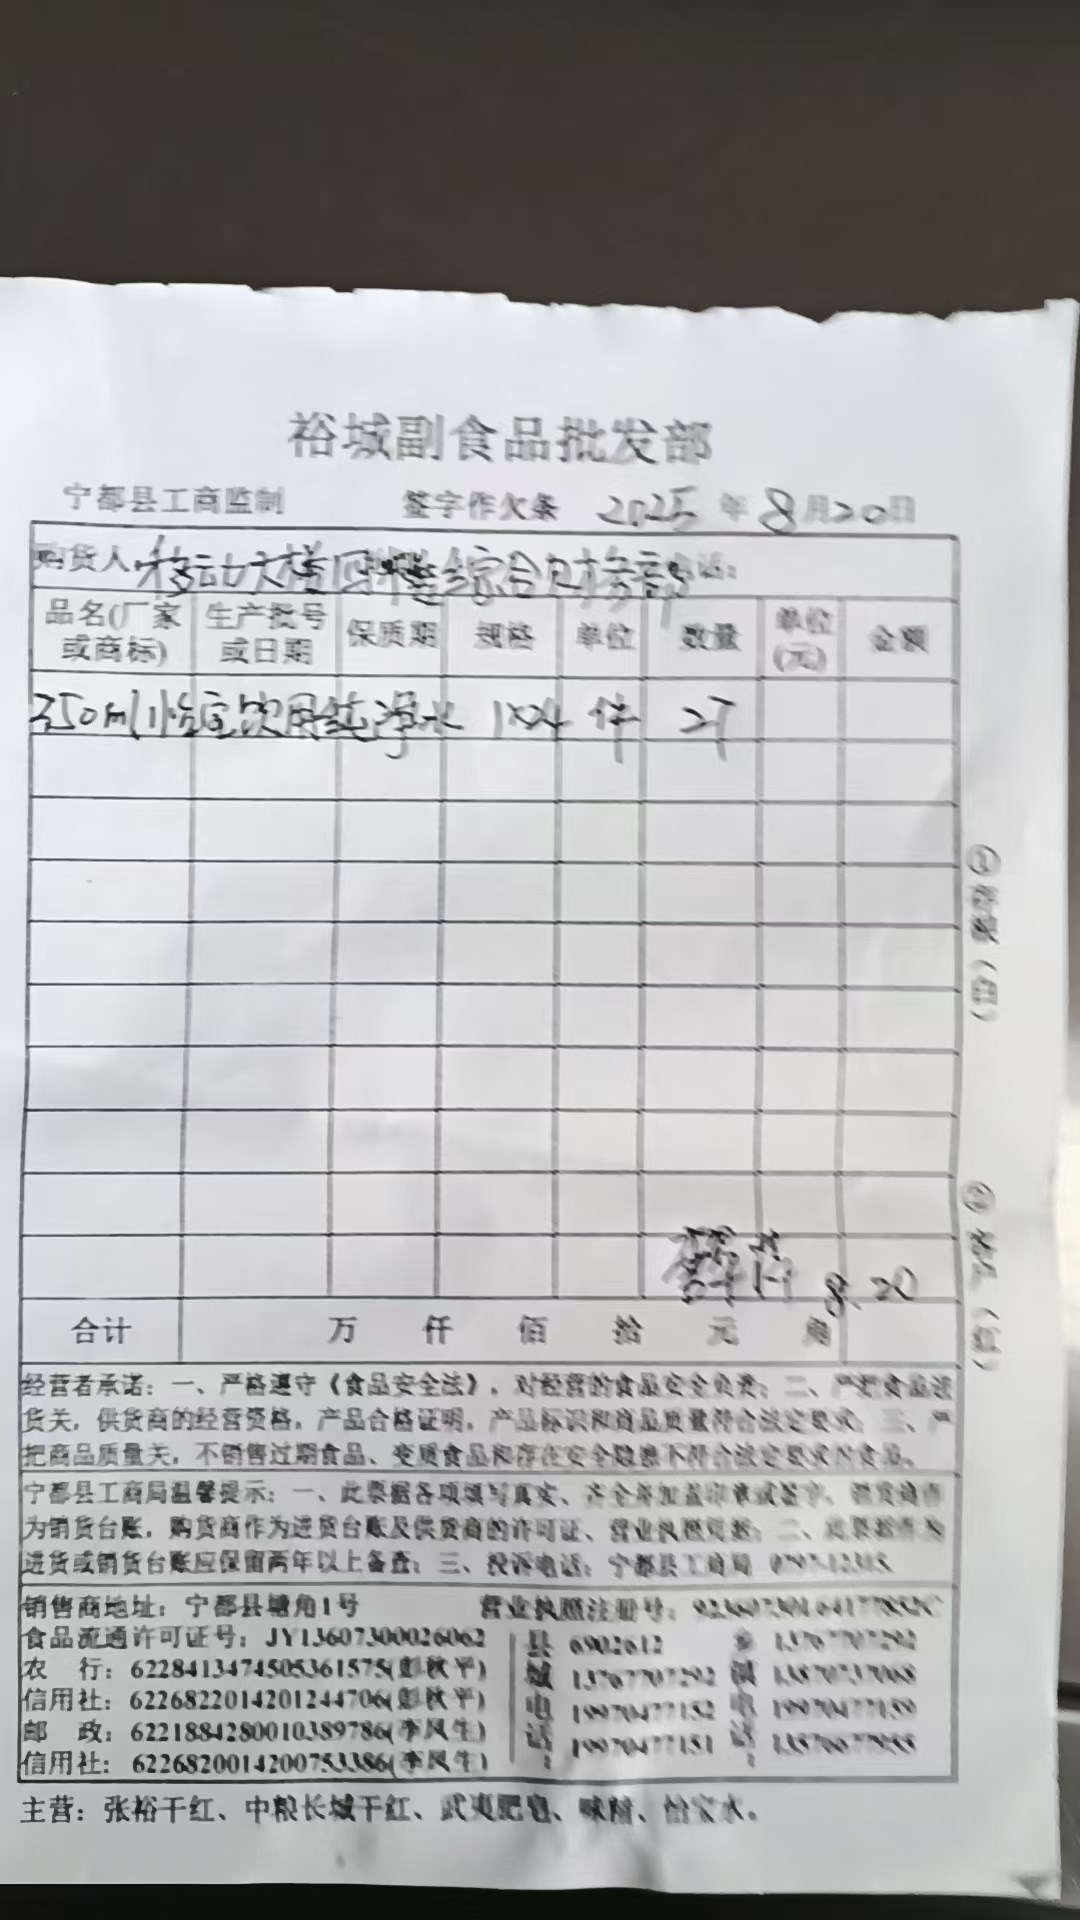 裕城副食品批发部
宁都县工商监制 签字作欠条 2025年8月20日
购货人 移动大楼四楼综合财务部 电话:
品名(厂家或商标) 生产批号或日期 保质期 规格 单位 数量 单位(元) 金额
350ml怡宝饮用纯净水 1×24 件 27
8.20
合计 万 仟 佰 拾 元 角
经营者承诺：一、严格遵守《食品安全法》，对经营的食品安全负责；二、严把食品进
货关，供货商的经营资格，产品合格证明，产品标识和商品质量符合法定要求；三、严
把商品质量关，不销售过期食品、变质食品和存在安全隐患不符合法定要求的食品。
宁都县工商局温馨提示：一、此票据各项填写真实、齐全并加盖印章或签字，供货商作
为销货台账，购货商作为进货台账及供货商的许可证、营业执照凭据；二、此票据作为
进货或销货台账应保留两年以上备查；三、投诉电话：宁都县工商局 0797-12315
销售商地址：宁都县塘角1号 营业执照注册号：
食品流通许可证号：JY13607300026062
农 行：6228413474505361575(彭秋平)
信用社：6226822014201244706(彭秋平)
邮 政：6221884280010389786(李凤生)
信用社：6226820014200753386(李凤生)
县城电话：6902612 13767707292 19970477152 19970477151
乡镇电话：13767707292 13870737068 19970477159
主营：张裕干红、中粮长城干红、武夷肥皂、味精、怡宝水。
①存根（白）
②客户（红）